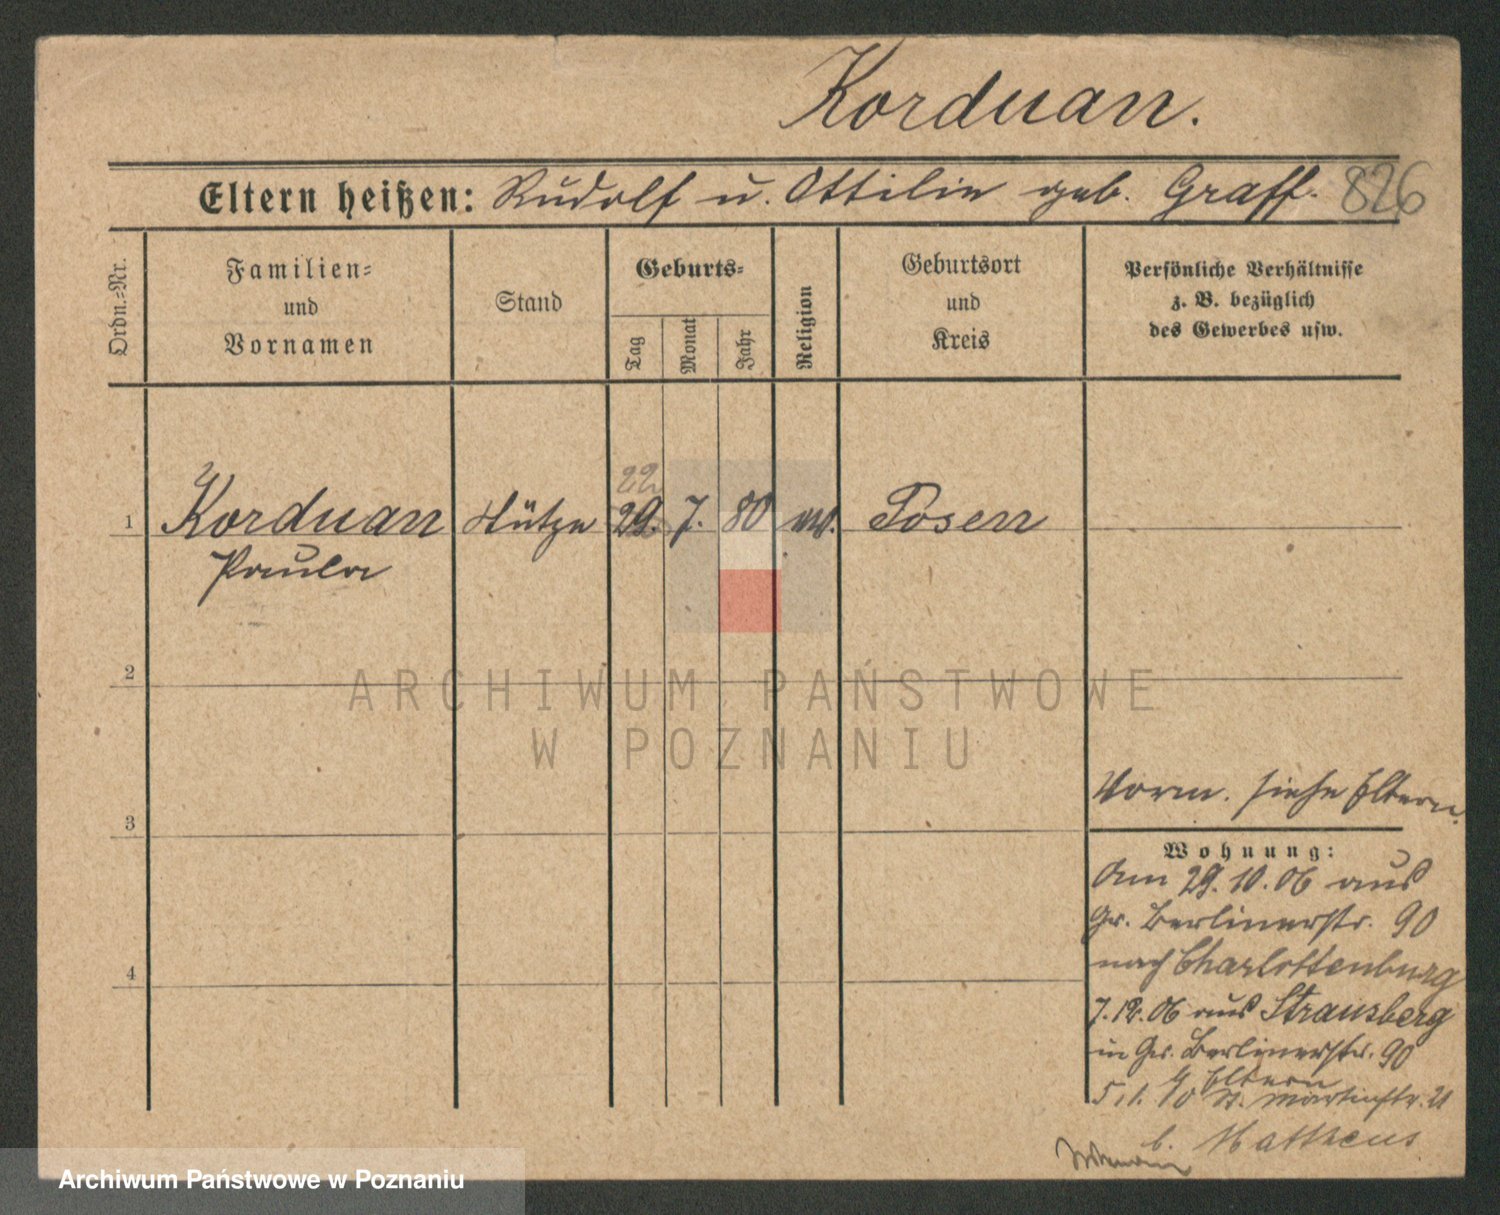 Korduan.
Eltern heißen: Rudolf u. Ottilie geb. Graff. 826
Ordn.=Nr.
Familien=
und
Vornamen
Stand
Geburts=
Tag
Monat
Jahr
Religion
Geburtsort
und
Kreis
Persönliche Verhältnisse
z. B. bezüglich
des Gewerbes usw.
22
1 Korduan Stütze 29. 7. 80 ev. Posen
Paula
2
ARCHIWUM PAŃSTWOWE
W POZNANIU
Vorm. siehe Eltern.
3
Wohnung:
Am 29.10.06 aus
Gr. Berlinerstr. 90
nach Charlottenburg
4
7.12.06 aus Strausberg
in Gr. Berlinerstr. 90
Eltern
5.1. St. Martinstr. 21
b. Mattheus
Archiwum Państwowe w Poznaniu